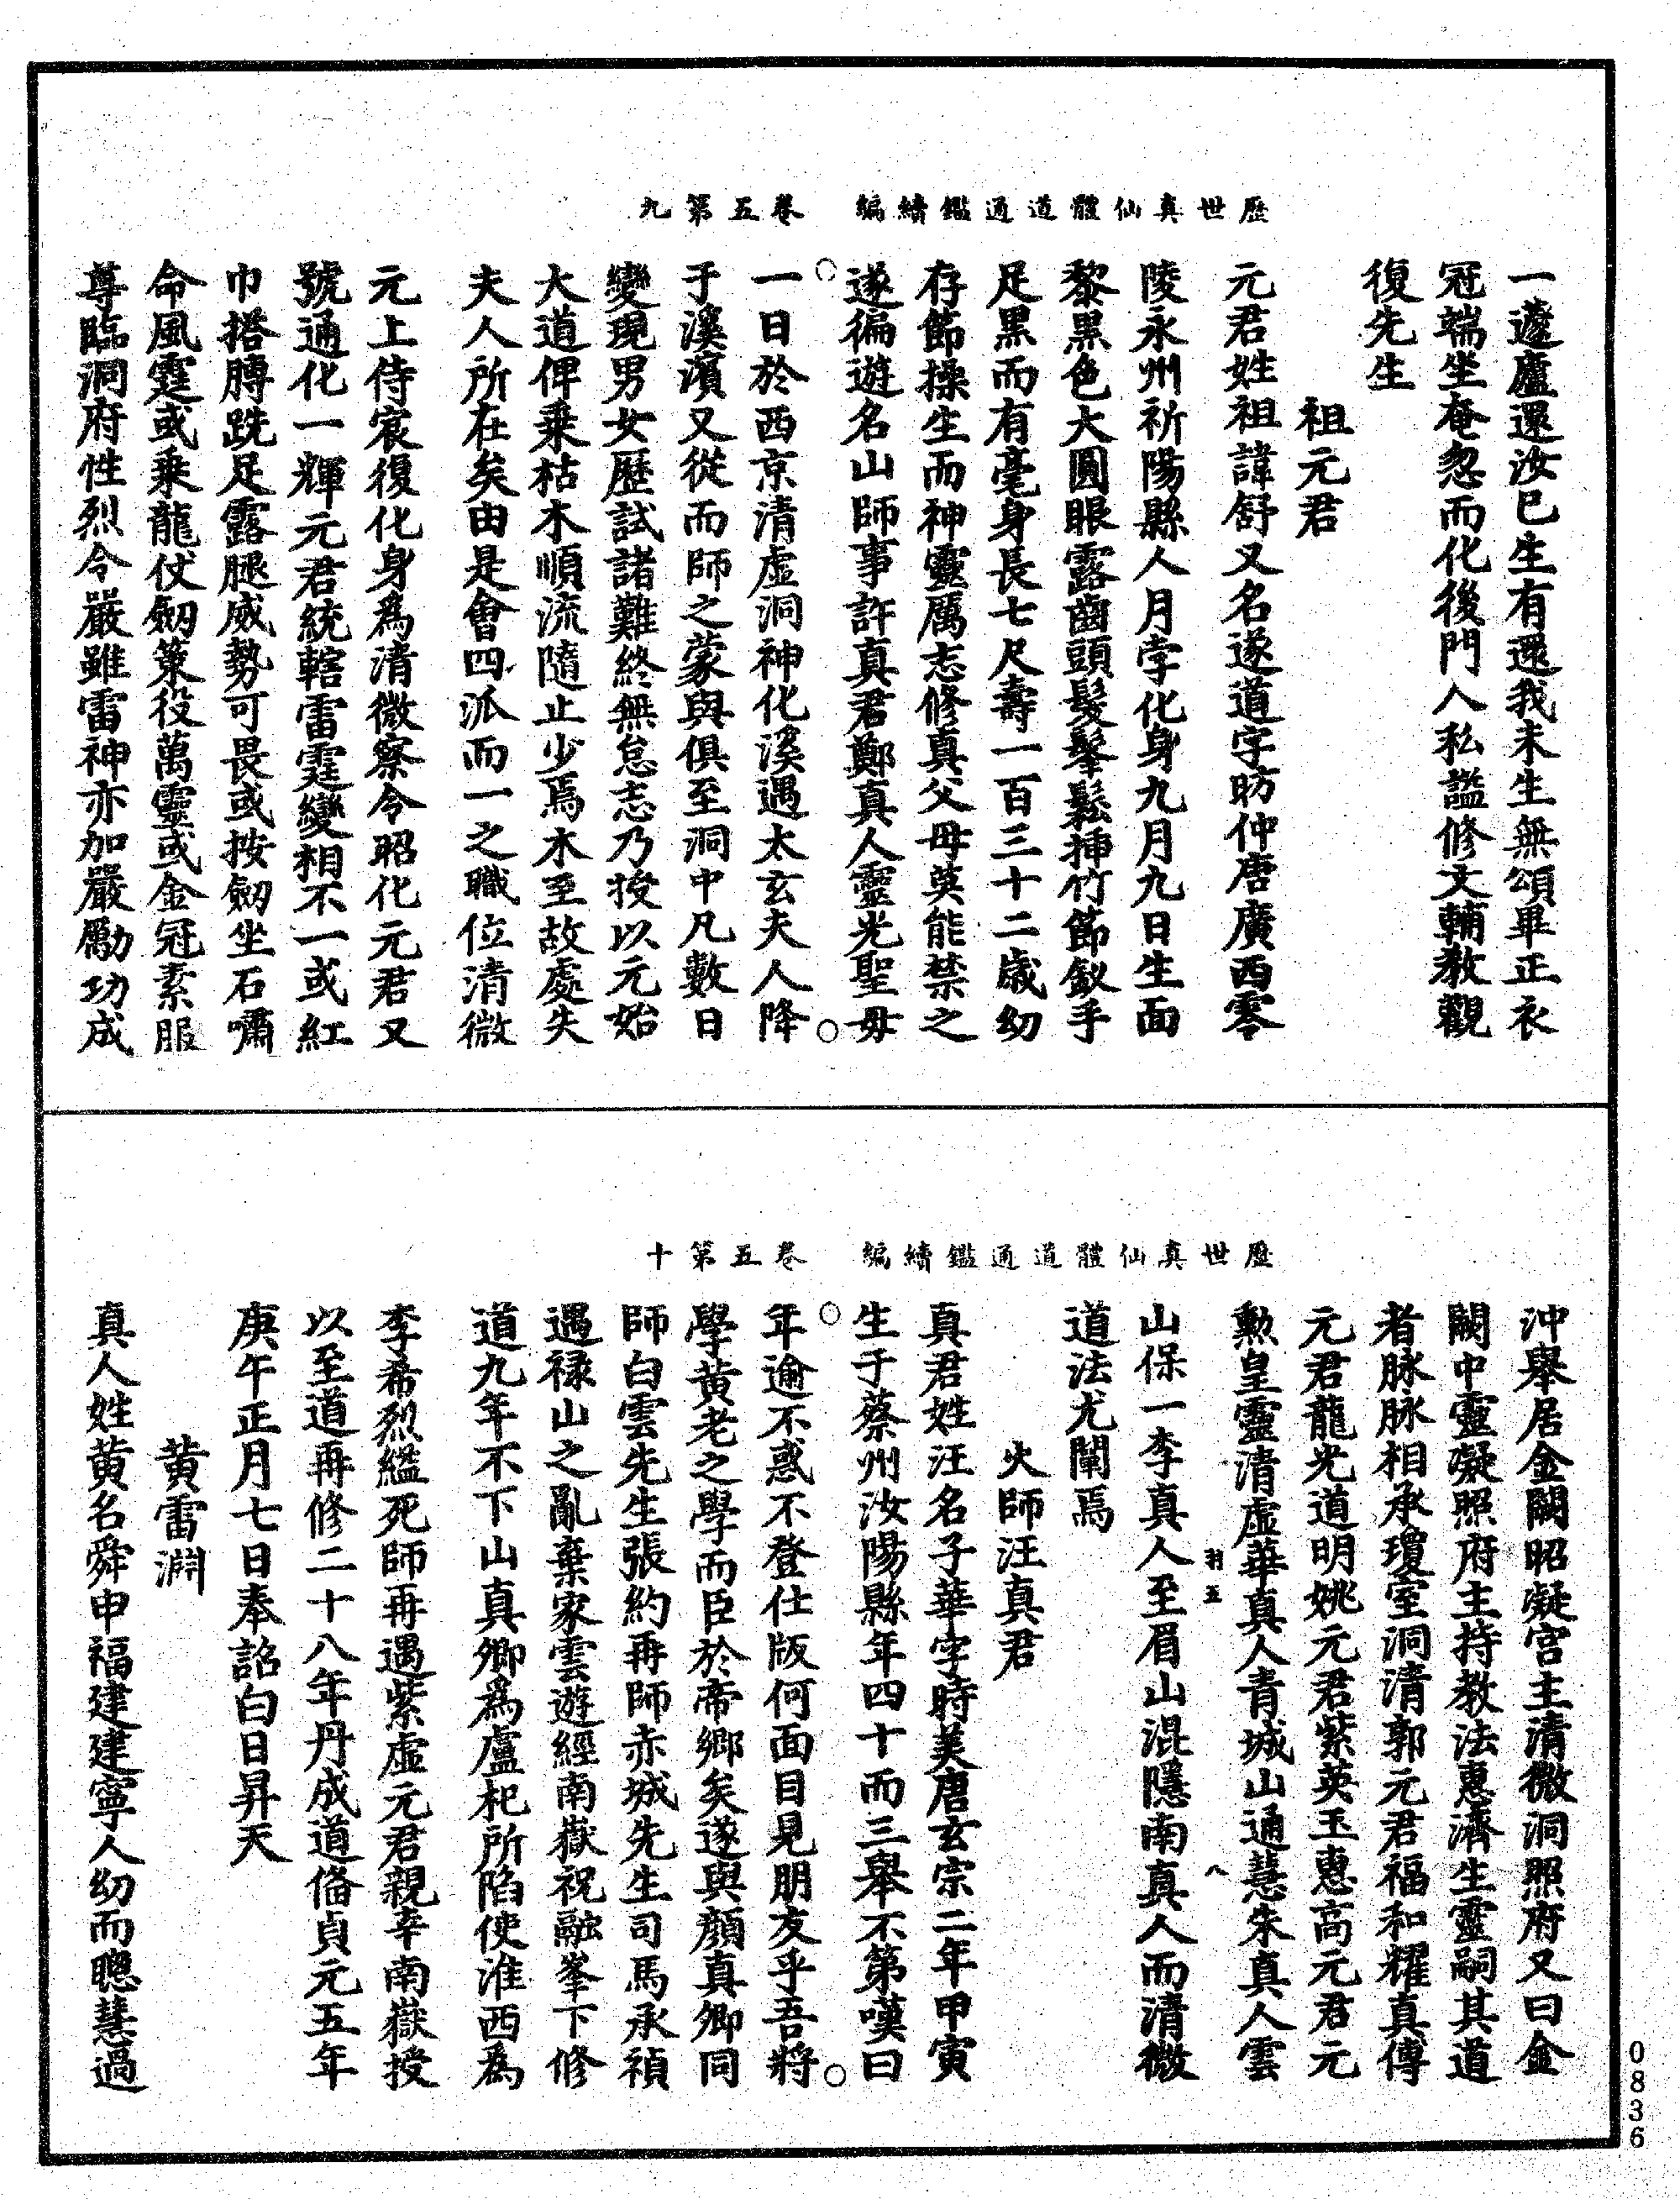 歷世真仙體道通鑑續編　卷五第九
一蘧廬還汝已生有還我未生無頌畢正衣
冠端坐奄忽而化後門人私諡修文輔教觀
復先生
祖元君
元君姓祖諱舒又名遂道字昉仲唐廣西零
陵永州祈陽縣人月孛化身九月九日生面
黎黑色大圓眼露齒頭髮鬔鬆挿竹節釵手
足黑而有毫身長七尺壽一百三十二歲幼
存節操生而神靈厲志修真父母莫能禁之
遂徧遊名山師事許真君鄭真人靈光聖母
一日於西京清虛洞神化溪遇太玄夫人降
于溪濱又從而師之蒙與俱至洞中凡數日
變現男女歷試諸難終無怠志乃授以元始
大道俾乘枯木順流隨止少焉木至故處失
夫人所在矣由是會四派而一之職位清微
元上侍宸復化身為清微察令昭化元君又
號通化一輝元君統轄雷霆變相不一或紅
巾搭膊跣足露腿威勢可畏或按劒坐石嘯
命風霆或乘龍仗劒策役萬靈或金冠素服
尊臨洞府性烈令嚴雖雷神亦加嚴勵功成
歷世真仙體道通鑑續編　卷五第十
沖舉居金闕昭凝宮主清微洞照府又曰金
闕中靈凝照府主持教法惠濟生靈嗣其道
者脉脉相承瓊室洞清郭元君福和耀真傅
元君龍光道明姚元君紫英玉惠高元君元
勲皇靈清虛華真人青城山通慧朱真人雲
羽五　八
山保一李真人至眉山混隱南真人而清微
道法尤闡焉
火師汪真君
真君姓汪名子華字時美唐玄宗二年甲寅
生于蔡州汝陽縣年四十而三舉不第嘆曰
年逾不惑不登仕版何面目見朋友乎吾將
學黃老之學而臣於帝鄉矣遂與顏真卿同
師白雲先生張約再師赤城先生司馬承禎
遇祿山之亂棄家雲遊經南嶽祝融峯下修
道九年不下山真卿為盧杞所陷使淮西為
李希烈縊死師再遇紫虛元君親幸南嶽授
以至道再修二十八年丹成道俻貞元五年
庚午正月七日奉詔白日昇天
黃雷淵
真人姓黃名舜申福建建寧人幼而聰慧過
0836